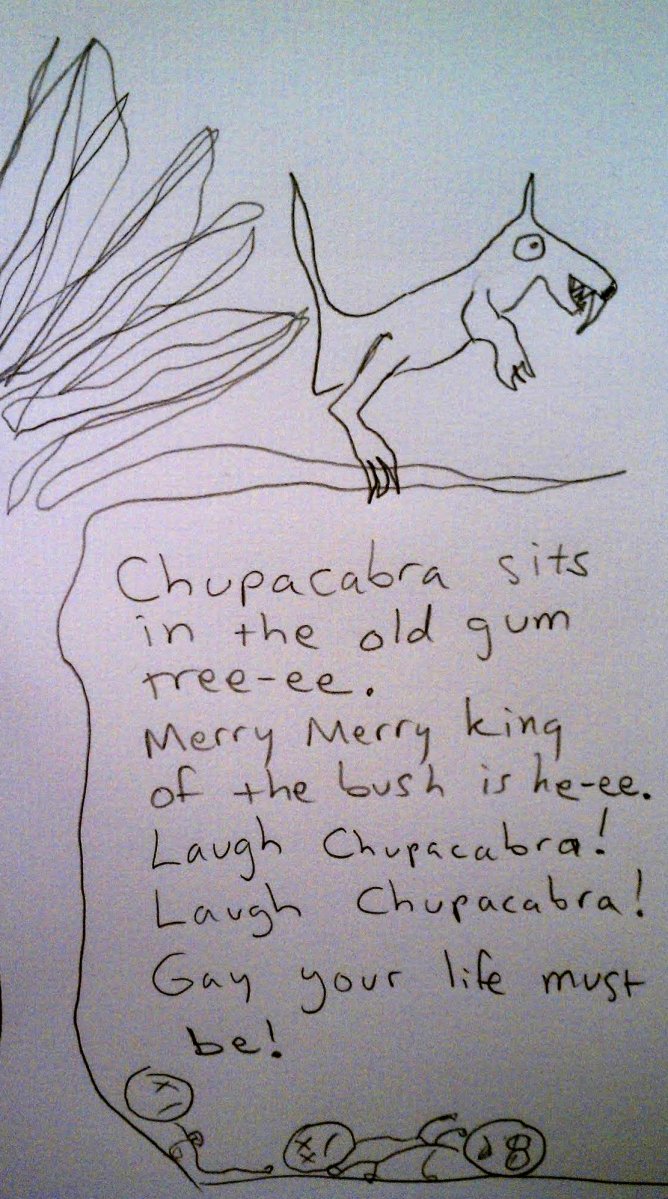 Chupacabra sits
in the old gum
tree-ee.
Merry Merry king
of the bush is he-ee.
Laugh Chupacabra!
Laugh Chupacabra!
Gay your life must
be!